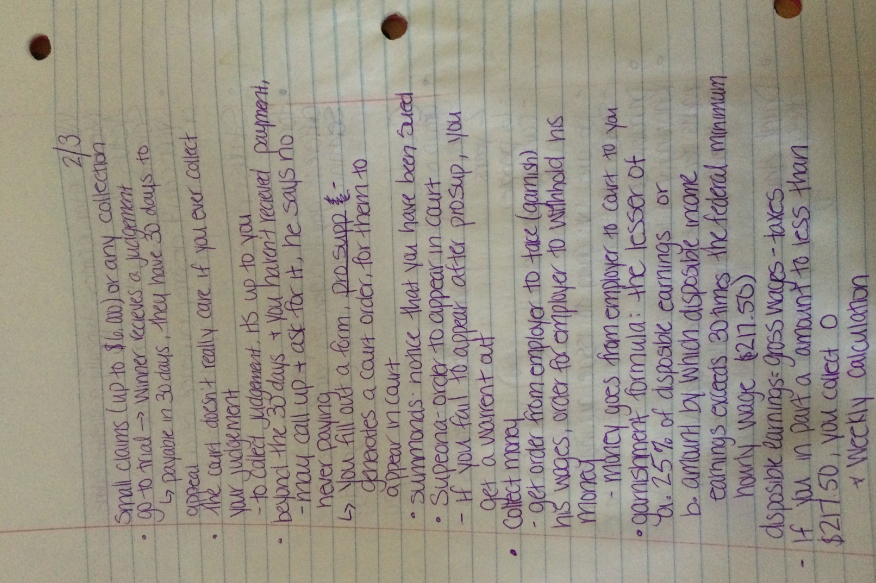 2/3
Small claims (up to $6.00) or any collection
• go to trial → winner recieves a judgement
↳ payable in 30 days, they have 30 days to
appeal
• The court doesn't really care if you ever collect
your judgement
- to collect judgement its up to you
• beyond the 30 days + you haven't recieved payment,
- may call up + ask for it, he says no
never paying
↳ You fill out a form, pro supp -
generates a court order, for them to
appear in court
• summonds- notice that you have been sued
• Supeona- order to appear in court
- If you fail to appear after prosup, you
get a warrent out
• Collect money
- get order from employer to take (garnish)
his wages, order for employer to withhold his
money
- money goes from employer to court to you
• garnishment formula: the lesser of
a. 25% of disposible earnings or
b. amount by which disposible income
earnings exceeds 30 times the federal minimum
hourly wage $217.50)
disposible earnings= gross wages - taxes
- If you in part a amount to less than
$217.50, you collect 0
* Weekly calculation